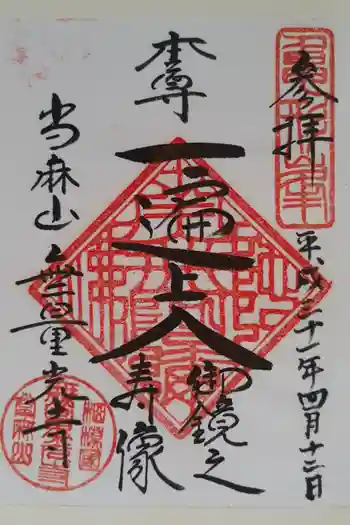 参拝
平成三十一年四月十二日
本尊
一遍上人
御鏡之
寿像
当麻山
無量光寺